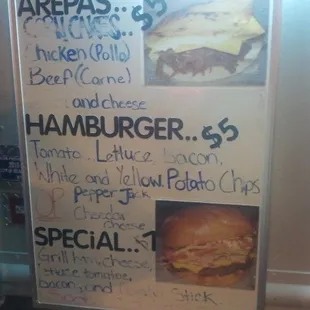 AREPAS.. $5
Chicken (Pollo)
Beef (Carne)
and cheese
HAMBURGER.. $5
Tomato. Lettuce bacon,
White and Yellow Potato Chips
Pepper Jack
Chedar
cheese
SPECiAL..
Grill cheese,
tomatoe,
bacon, and Stick